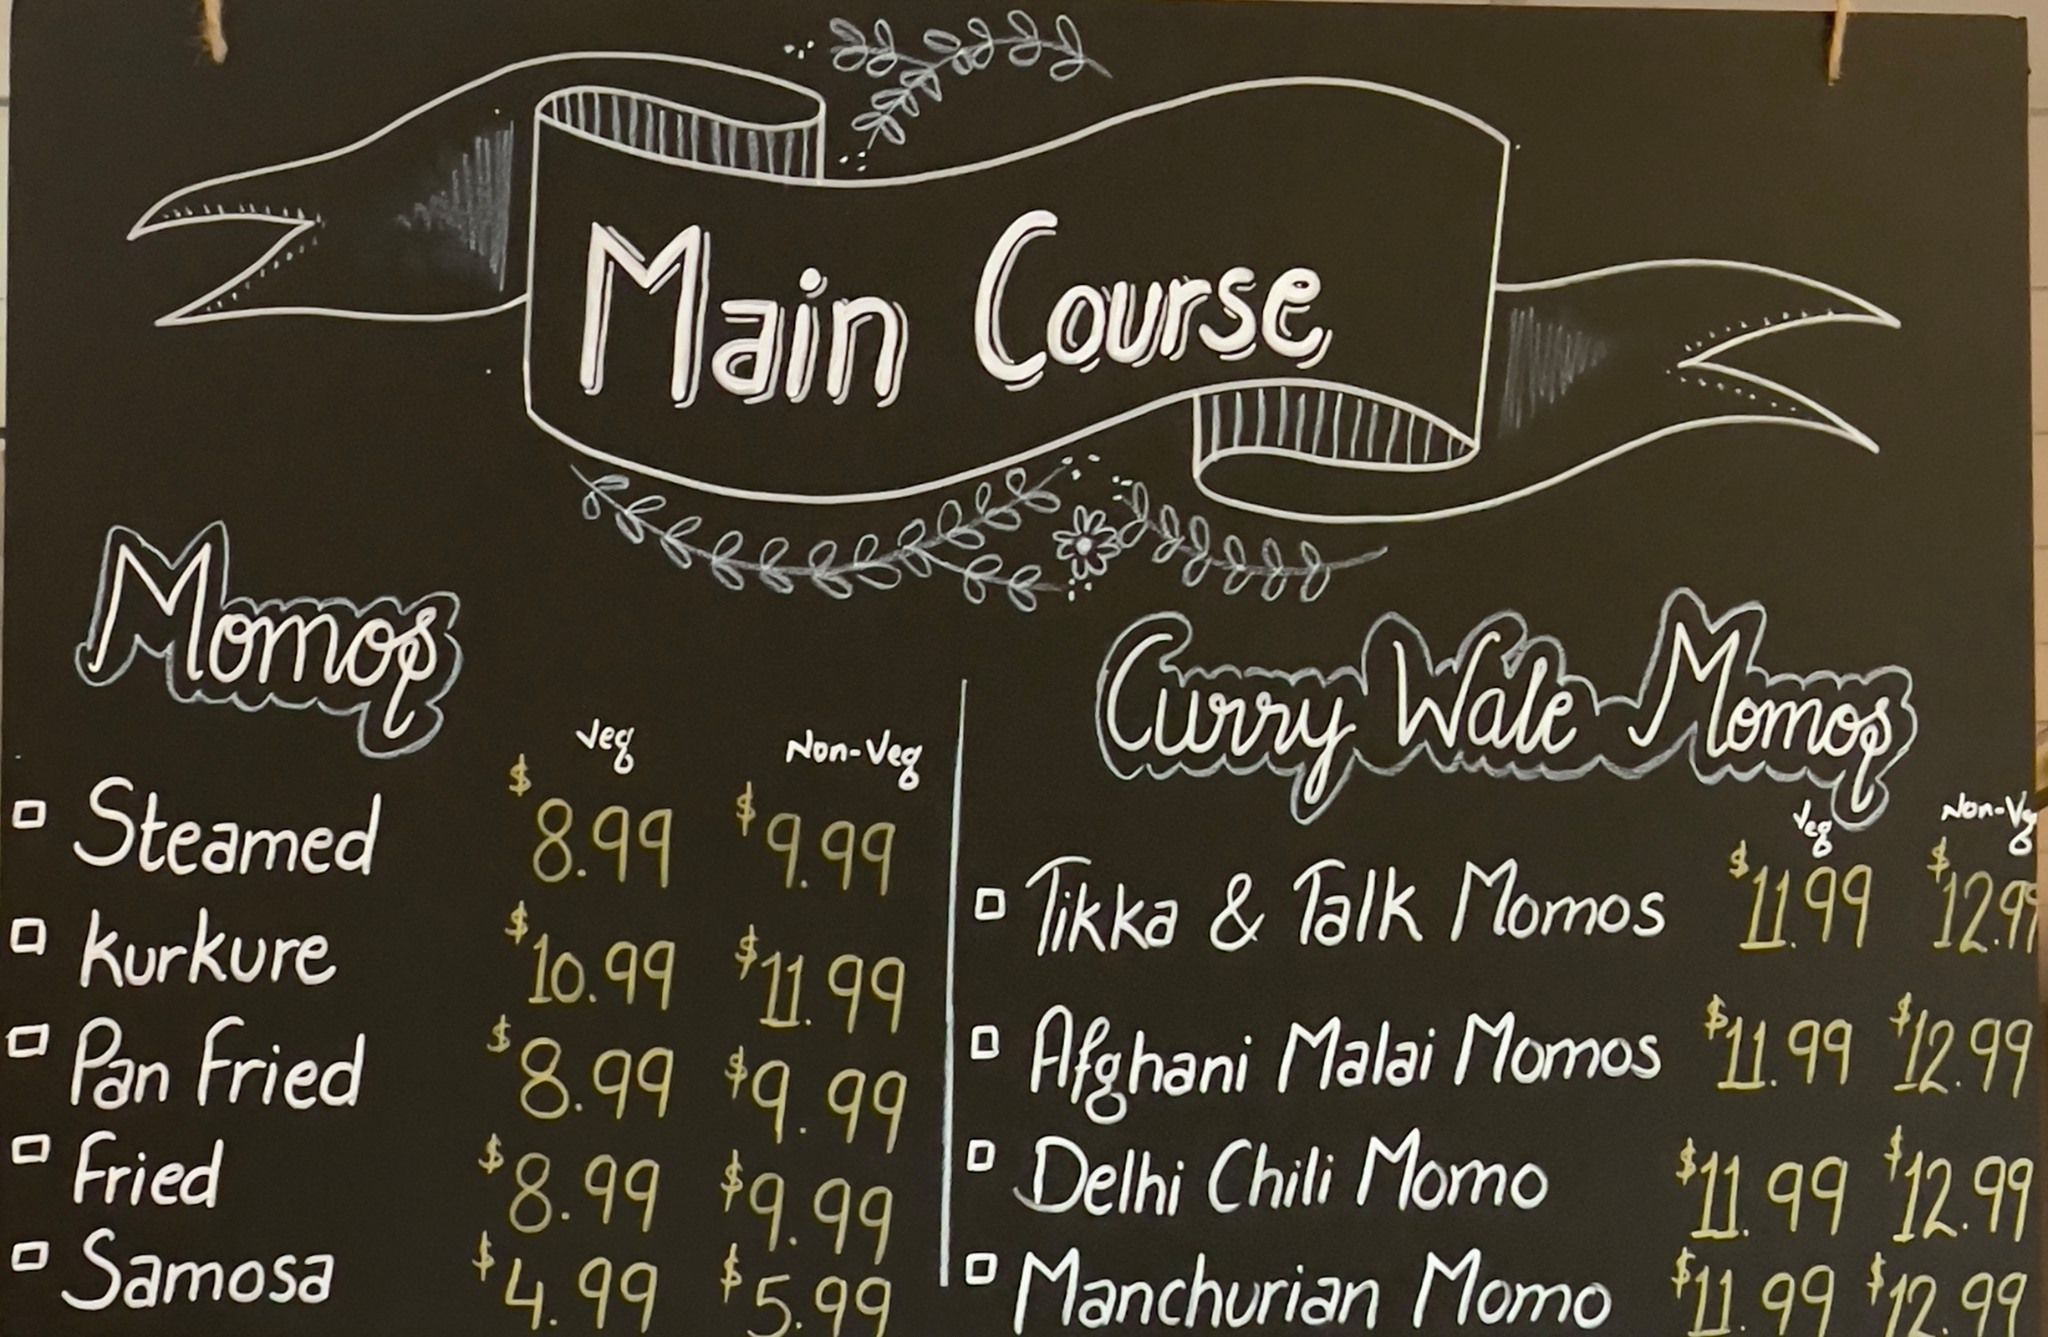 Main Course
Momos
Veg Non-Veg
Steamed $8.99 $9.99
Kurkure $10.99 $11.99
Pan Fried $8.99 $9.99
Fried $8.99 $9.99
Samosa $4.99 $5.99
Curry Wale Momos
Veg Non-Veg
Tikka & Talk Momos $11.99 $12.99
Afghani Malai Momos $11.99 $12.99
Delhi Chili Momo $11.99 $12.99
Manchurian Momo $11.99 $12.99